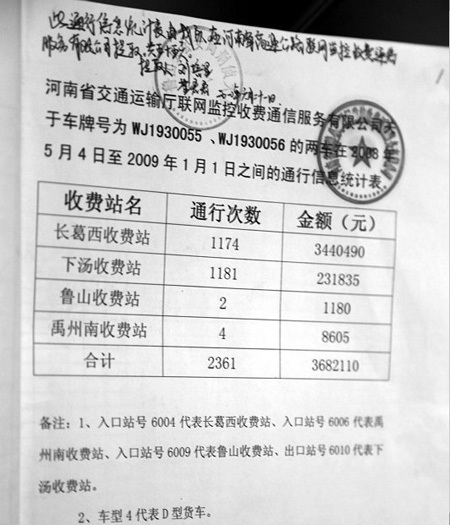 此通行信息统计表由我队在河南省高速公路联网监控收费通信
服务有限公司提取
提取人
河南省交通运输厅联网监控收费通信服务有限公司关
于车牌号为 WJ1930055、WJ1930056 的两车在 2008 年
5 月 4 日至 2009 年 1 月 1 日之间的通行信息统计表
收费站名 通行次数 金额（元）
长葛西收费站 1174 3440490
下汤收费站 1181 231835
鲁山收费站 2 1180
禹州南收费站 4 8605
合计 2361 3682110
备注：1、入口站号 6004 代表长葛西收费站、入口站号 6006 代表禹
州南收费站、入口站号 6009 代表鲁山收费站、出口站号 6010 代表下
汤收费站。
2、车型 4 代表 D 型货车。